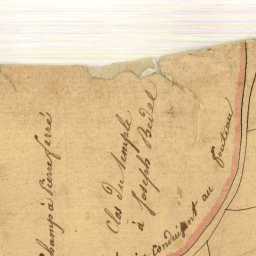 Champ à Pierre ferré
Clos du temple
à Joseph Bidel
conduisant au